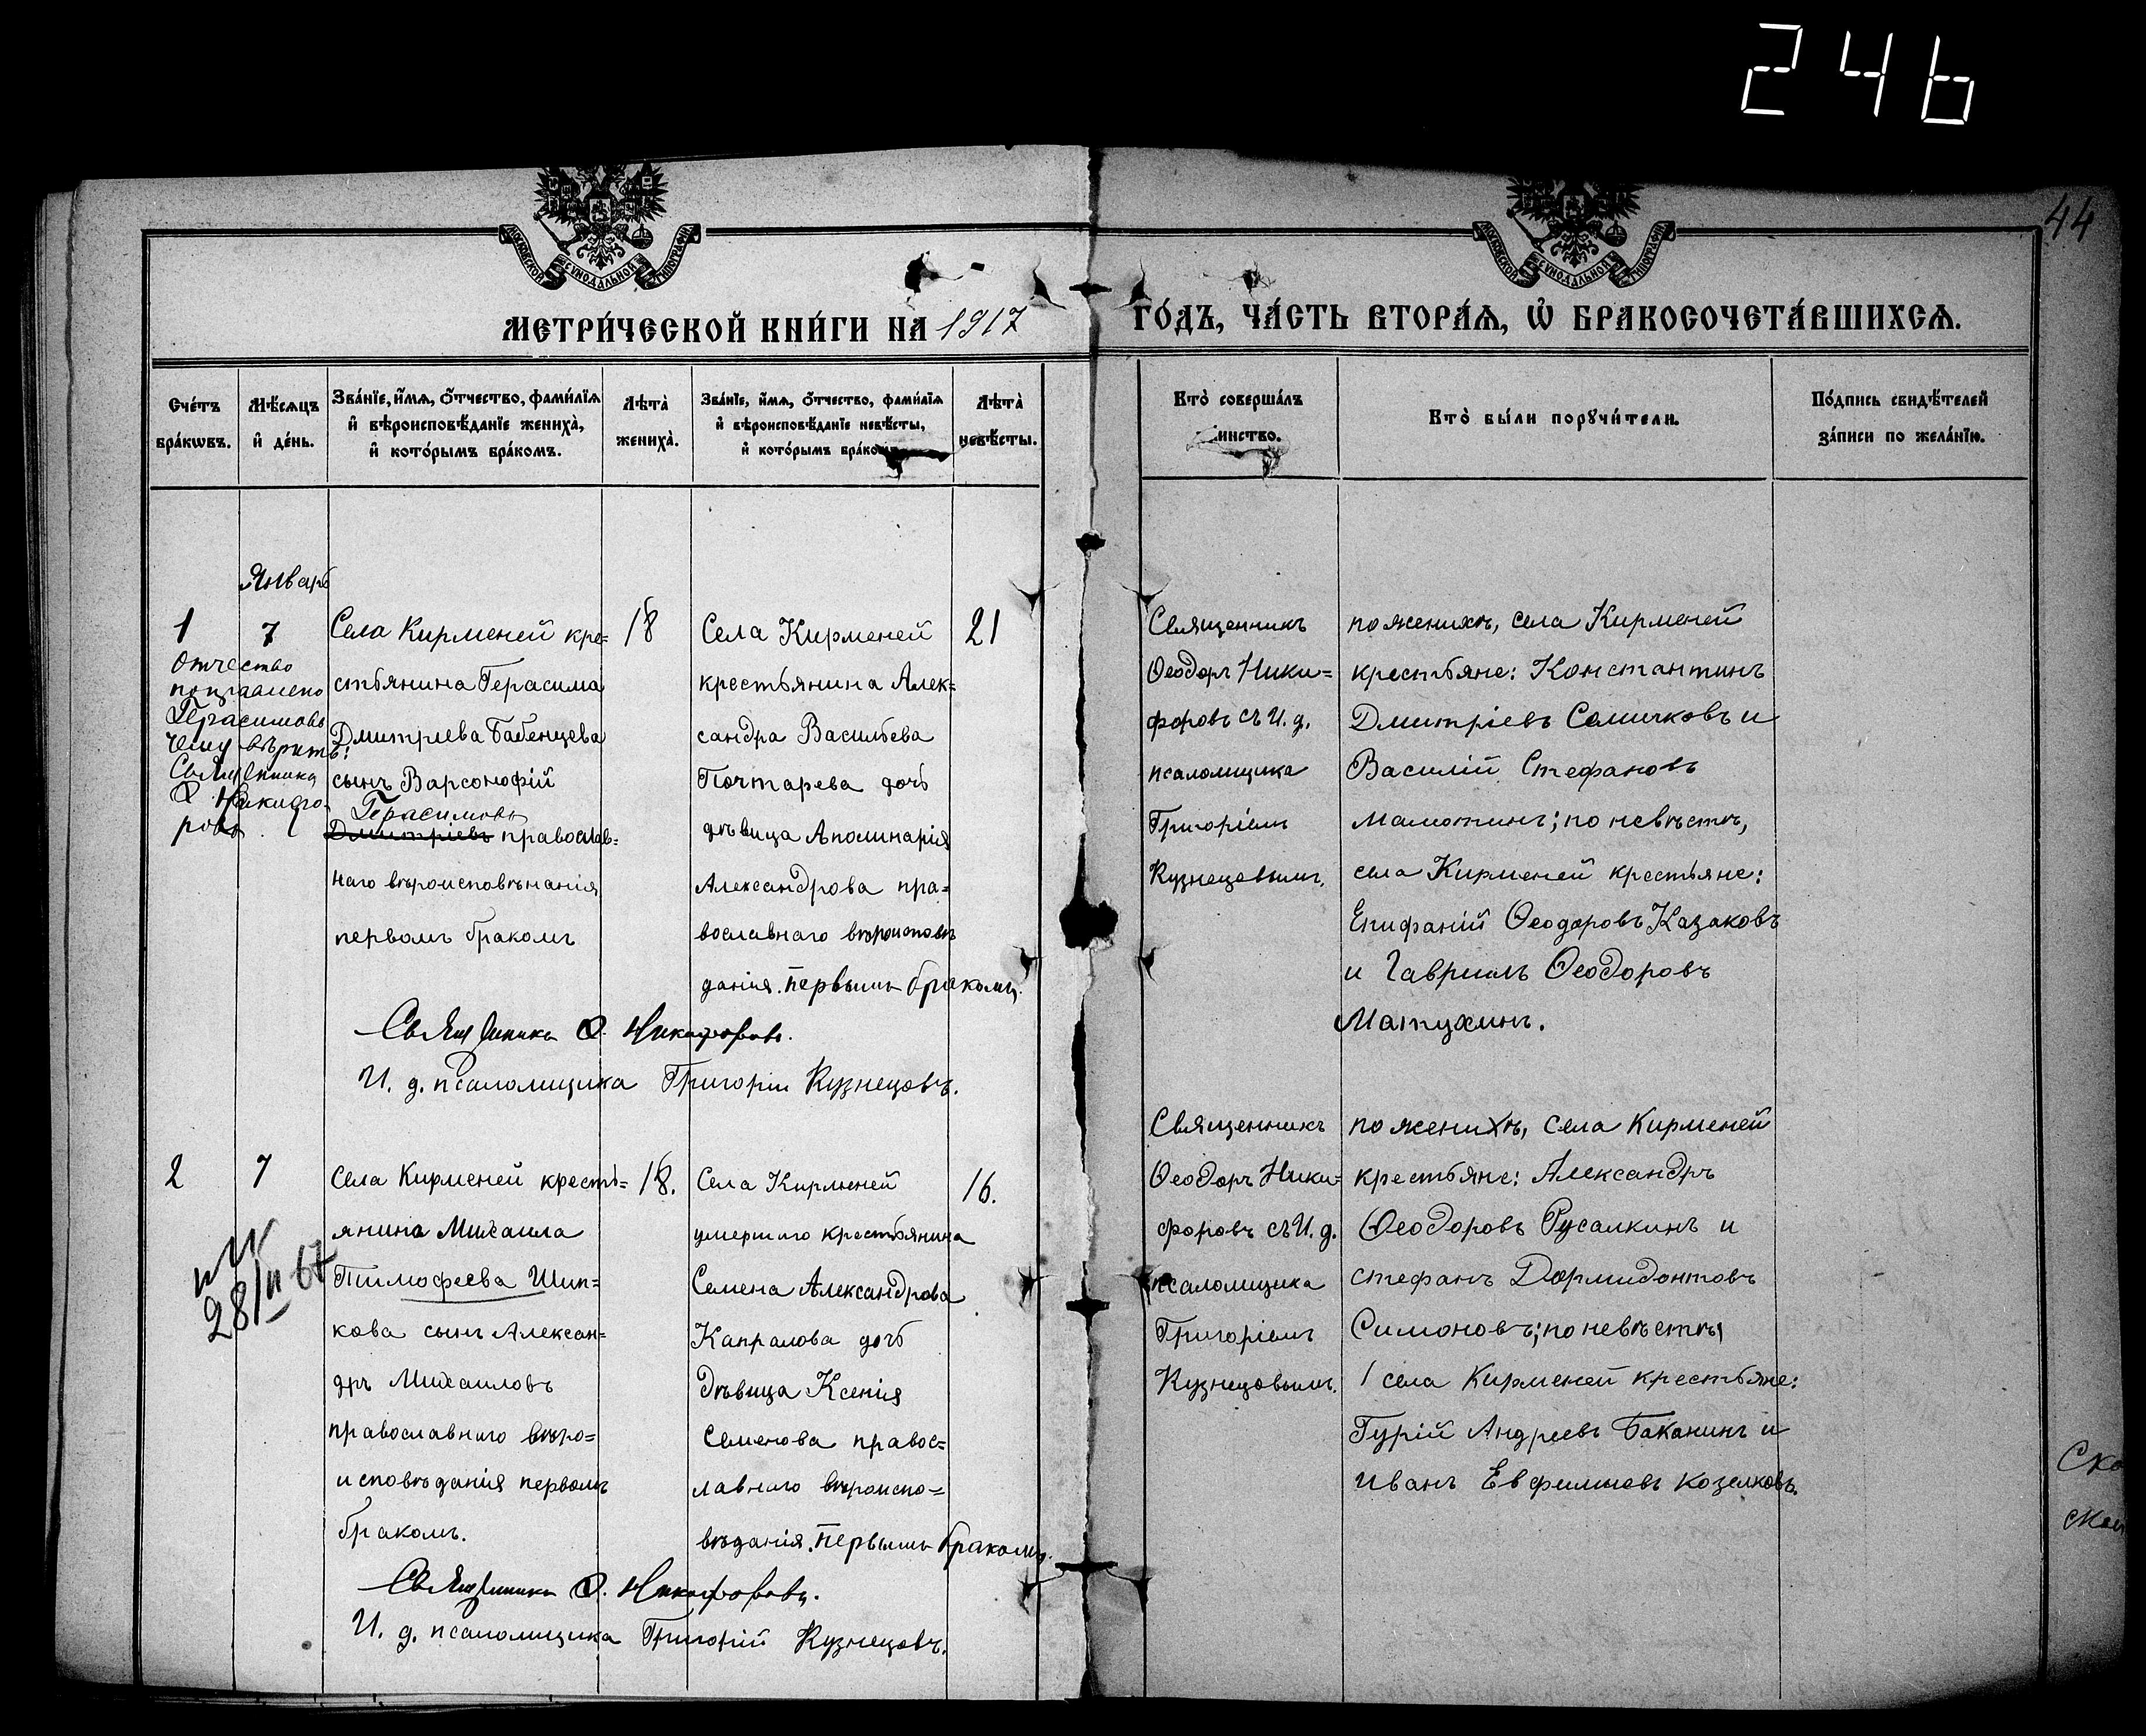 246
44
МОСКОВСКОЙ СѴНОДАЛЬНОЙ ТИПОГРАФІИ
МОСКОВСКОЙ СѴНОДАЛЬНОЙ ТИПОГРАФІИ
МЕТРИ́ЧЕСКОЙ КНИ́ГИ НА 1917 ГО́ДЪ, ЧА́СТЬ ВТОРА́Ѧ, Ѡ҆ БРАКОСОЧЕТА́ВШИХСѦ.
Сче́тъ
бра́кѡвъ.
Мѣ́сѧцъ
и҆ де́нь.
Зва́нїе, и҆́мѧ, о҆́тчество, фами́лїѧ
и҆ вѣроисповѣ́данїе жениха̀,
и҆ кото́рымъ бра́комъ.
Лѣта̀
жениха̀.
Зва́нїе, и҆́мѧ, о҆́тчество, фами́лїѧ
и҆ вѣроисповѣ́данїе невѣ́сты,
и҆ кото́рымъ бра́комъ
Лѣта̀
невѣ́сты.
Кто̀ соверша́лъ
инство.
Кто̀ бы́ли порꙋчи́тели.
По́дпись свидѣ́телей
за́писи по жела́нїю.
Январь
1
7
Отчество
поправлено
Герасимовъ
чему вѣрить:
Священникъ
Ѳ Никифо-
ровъ.
Села Кирменей кре=
стьянина Герасима
Дмитріева Бабенцева
сынъ Варсонофій
Герасимовъ
Дмитріевъ православ=
наго вѣроисповѣнанія
первомъ бракомъ
18
Села Кирменей
крестьянина Алек=
сандра Васильева
Почтарева дочь
дѣвица Аполинарія
Александрова пра=
вославнаго вѣроисповѣ
данія. первымъ бракомъ.
21
Священникъ
Ѳеодоръ Ники=
форовъ съ И. д.
псаломщика
Григоріемъ
Кузнецовымъ.
по женихѣ, села Кирменей
крестьяне: Константинъ
Дмитріевъ Семичковъ и
Василій Стефановъ
Мамотинъ; по невѣстѣ,
села Кирменей крестьяне:
Епифаній Ѳеодоровъ Казаковъ
и Гавріилъ Ѳеодоровъ
Матухинъ.
Священникъ Ѳ. Никифоровъ.
И. д. псаломщика Григорій Кузнецовъ.
2
7
28/II 67
Села Кирменей кресть=
янина Михаила
Тимофеева Шип=
кова сынъ Алексан=
дръ Михаиловъ
православнаго вѣро=
исповѣданія первомъ
бракомъ.
18.
Села Кирменей
умершаго крестьянина
Семена Александрова
Капралова дочь
дѣвица Ксенія
Семенова правос=
лавнаго вѣроиспо=
вѣданія. первымъ бракомъ.
16.
Священникъ
Ѳеодоръ Ники=
форовъ съ И. д.
псаломщика
Григоріемъ
Кузнецовымъ.
по женихѣ, села Кирменей
крестьяне: Александръ
Ѳеодоровъ Русалкинъ и
стефанъ Дормидонтовъ
Симоновъ; по невѣстѣ,
села Кирменей крестьяне:
Гурій Андреевъ Баканинъ и
Иванъ Евфимиевъ Козелковъ.
Священникъ Ѳ. Никифоровъ.
И. д. псаломщика Григорій Кузнецовъ.